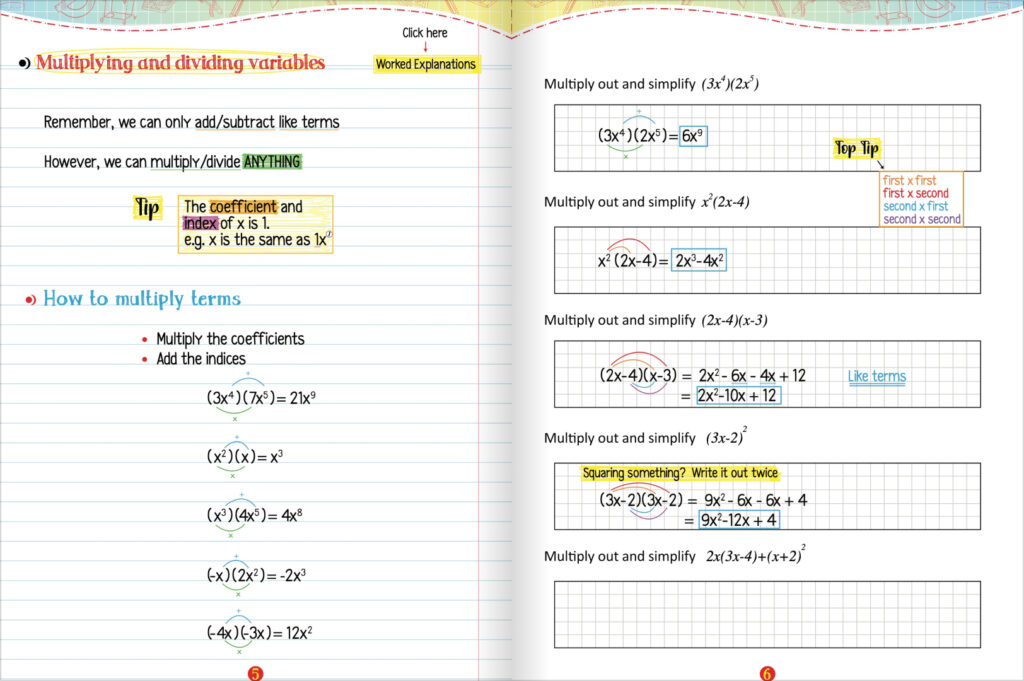 Click here
Multiplying and dividing variables
Worked Explanations
Remember, we can only add/subtract like terms
However, we can multiply/divide ANYTHING
Tip
The coefficient and
index of x is 1.
e.g. x is the same as 1x¹
How to multiply terms
• Multiply the coefficients
• Add the indices
+
(3x⁴)(7x⁵)= 21x⁹
x
+
(x²)(x)= x³
x
+
(x³)(4x⁵)= 4x⁸
x
+
(-x)(2x²)= -2x³
x
+
(-4x)(-3x)= 12x²
x
5
Multiply out and simplify (3x⁴)(2x⁵)
+
(3x⁴)(2x⁵)= 6x⁹
x
Top Tip
first x first
first x second
second x first
second x second
Multiply out and simplify x²(2x-4)
x² (2x-4)= 2x³-4x²
Multiply out and simplify (2x-4)(x-3)
(2x-4)(x-3) = 2x² - 6x - 4x + 12
= 2x²-10x + 12
Like terms
Multiply out and simplify (3x-2)²
Squaring something? Write it out twice
(3x-2)(3x-2) = 9x² - 6x - 6x + 4
= 9x²-12x + 4
Multiply out and simplify 2x(3x-4)+(x+2)²
6